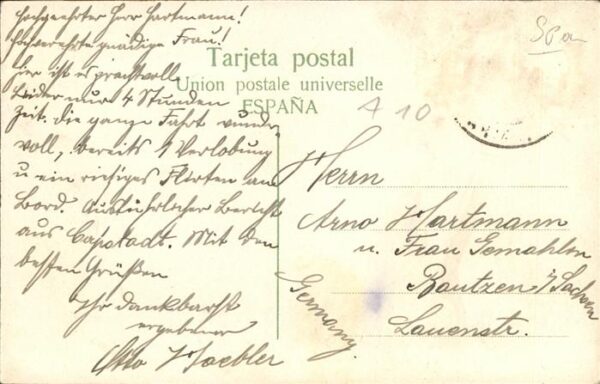 Hochgeehrter Herr Hartmann!
Hochverehrte gnädige Frau!
hier ist es prachtvoll
Leider nur 4 Stunden
Zeit. die ganze Fahrt wunder
voll, bereits 1 Verlobung
u ein riesiges Flirten an
Bord. Ausführlicher Bericht
aus Capstadt. Mit den
besten Grüßen
Ihr dankbarst
ergebener
Otto Haebler
Tarjeta postal
Union postale universelle
ESPAÑA
Span
A 10
Herrn
Arno Hartmann
u. Frau Gemahlin
Bautzen i/Sachsen
Lauenstr.
Germany.